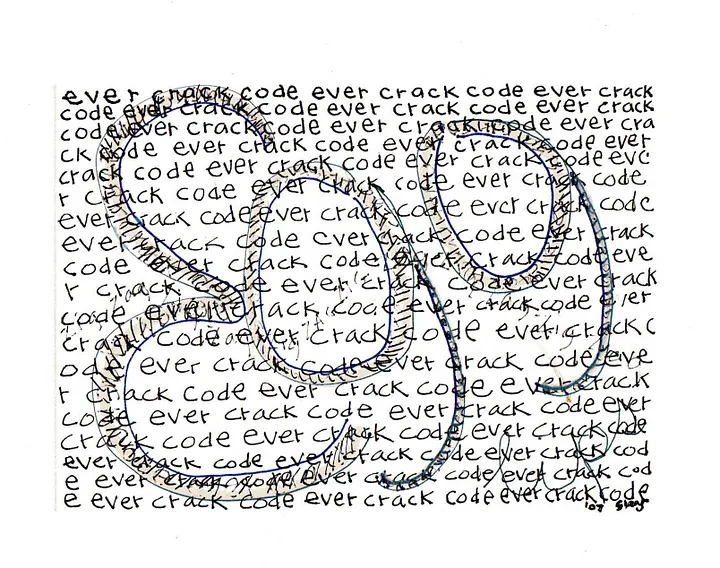 ever crack code ever crack code ever crack
code ever crack code ever crack code ever crack
code ever crack code ever crack code ever cra
ck code ever crack code ever crack code ever
crack code ever crack code ever crack code eve
r crack code ever crack code ever crack code
ever crack code ever crack code ever crack code
ever crack code ever crack code ever crack
code ever crack code ever crack code eve
r crack code ever crack code ever crack
code ever crack code ever crack code ever
crack code ever crack code ever crack c
ode ever crack code ever crack code eve
r crack code ever crack code ever crack
code ever crack code ever crack code ever
crack code ever crack code ever crack code
ever crack code ever crack code ever crack cod
e ever crack code ever crack code ever crack cod
e ever crack code ever crack code ever crack code
'07